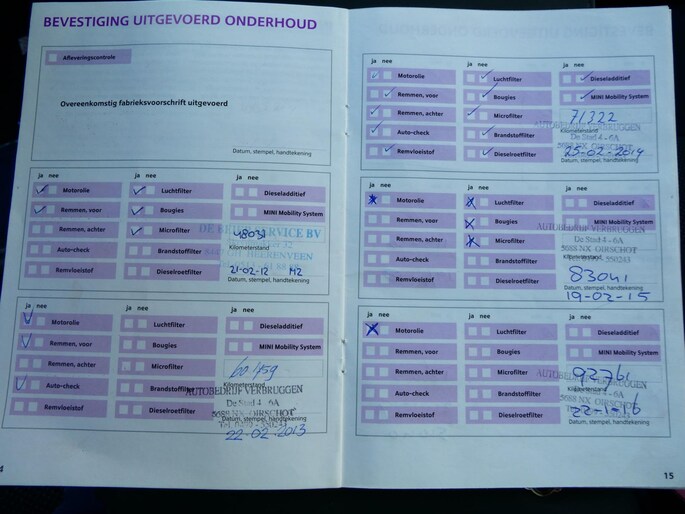 BEVESTIGING UITGEVOERD ONDERHOUD
Afleveringscontrole
Overeenkomstig fabrieksvoorschrift uitgevoerd
Datum, stempel, handtekening
ja nee
ja nee
ja nee
Motorolie
Luchtfilter
Dieseladditief
Remmen, voor
Bougies
MINI Mobility System
Remmen, achter
Microfilter
48031
Kilometerstand
Auto-check
Brandstoffilter
HEERENVEEN
Remvloeistof
Dieselroetfilter
21-02-12
Datum, stempel, handtekening
ja nee
ja nee
ja nee
Motorolie
Luchtfilter
Dieseladditief
Remmen, voor
Bougies
MINI Mobility System
Remmen, achter
Microfilter
60459
Kilometerstand
Auto-check
Brandstoffilter
AUTOBEDRIJF VERBRUGGEN
De Stad 4 - 6A
Remvloeistof
Dieselroetfilter
5688 NX OIRSCHOT
Datum, stempel, handtekening
22-02-2013
ja nee
ja nee
ja nee
Motorolie
Luchtfilter
Dieseladditief
Remmen, voor
Bougies
MINI Mobility System
Remmen, achter
Microfilter
71322
AUTOBEDRIJF VERBRUGGEN
Kilometerstand
Auto-check
Brandstoffilter
De Stad 4 - 6A
Remvloeistof
Dieselroetfilter
25-02-2014
Datum, stempel, handtekening
ja nee
ja nee
ja nee
Motorolie
Luchtfilter
Dieseladditief
Remmen, voor
Bougies
MINI Mobility System
AUTOBEDRIJF VERBRUGGEN
Remmen, achter
Microfilter
De Stad 4 - 6A
5688 NX OIRSCHOT
Kilometerstand
Auto-check
Brandstoffilter
83041
Remvloeistof
Dieselroetfilter
Datum, stempel, handtekening
19-02-15
ja nee
ja nee
ja nee
Motorolie
Luchtfilter
Dieseladditief
Remmen, voor
Bougies
MINI Mobility System
Remmen, achter
Microfilter
92761
AUTOBEDRIJF VERBRUGGEN
Kilometerstand
Auto-check
Brandstoffilter
De Stad 4 - 6A
5688 NX OIRSCHOT
Remvloeistof
Dieselroetfilter
22-1-16
Datum, stempel, handtekening
15